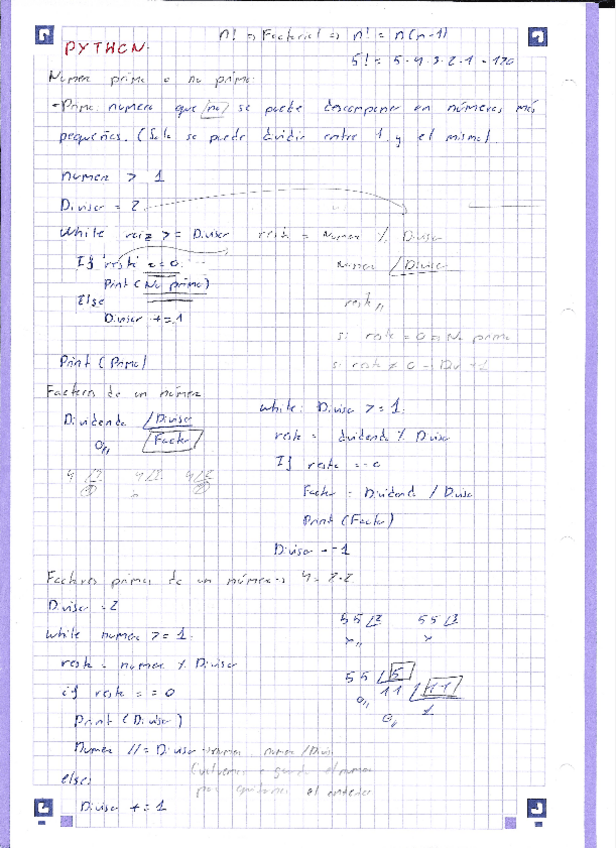 PYTHON.
n! => Factorial => n! = n(n-1)
5! = 5·4·3·2·1 = 120
Numero primo o no primo.
-Primo: numero que no se puede descomponer en números más
pequeños. (Solo se puede dividir entre 1 y el mismo).
numero > 1
Divisor = 2
while raiz >= Divisor
resto = Numero % Divisor
If resto == 0
Print (No primo)
Else
Divisor += 1
Numero /Divisor
resto,,
si resto = 0 => No primo
si resto ≠ 0 → Div +1
Print (Primo)
Factores de un número
Dividendo /Divisor
0,, Factor
4 /2
while: Divisor >= 1:
resto = dividendo % Divisor
If resto == 0
Factor = Dividendo / Divisor
Print (Factor)
Divisor -= 1
Factores primos de un número → 4 = 2·2
Divisor = 2
while numero >= 1:
resto = numero % Divisor
if resto == 0
Print (Divisor)
Numero //= Divisor → numero = numero / Divisor
else:
Divisor += 1
55 /2 55 /3
55 /5
0,, 11 /11
0,, 1